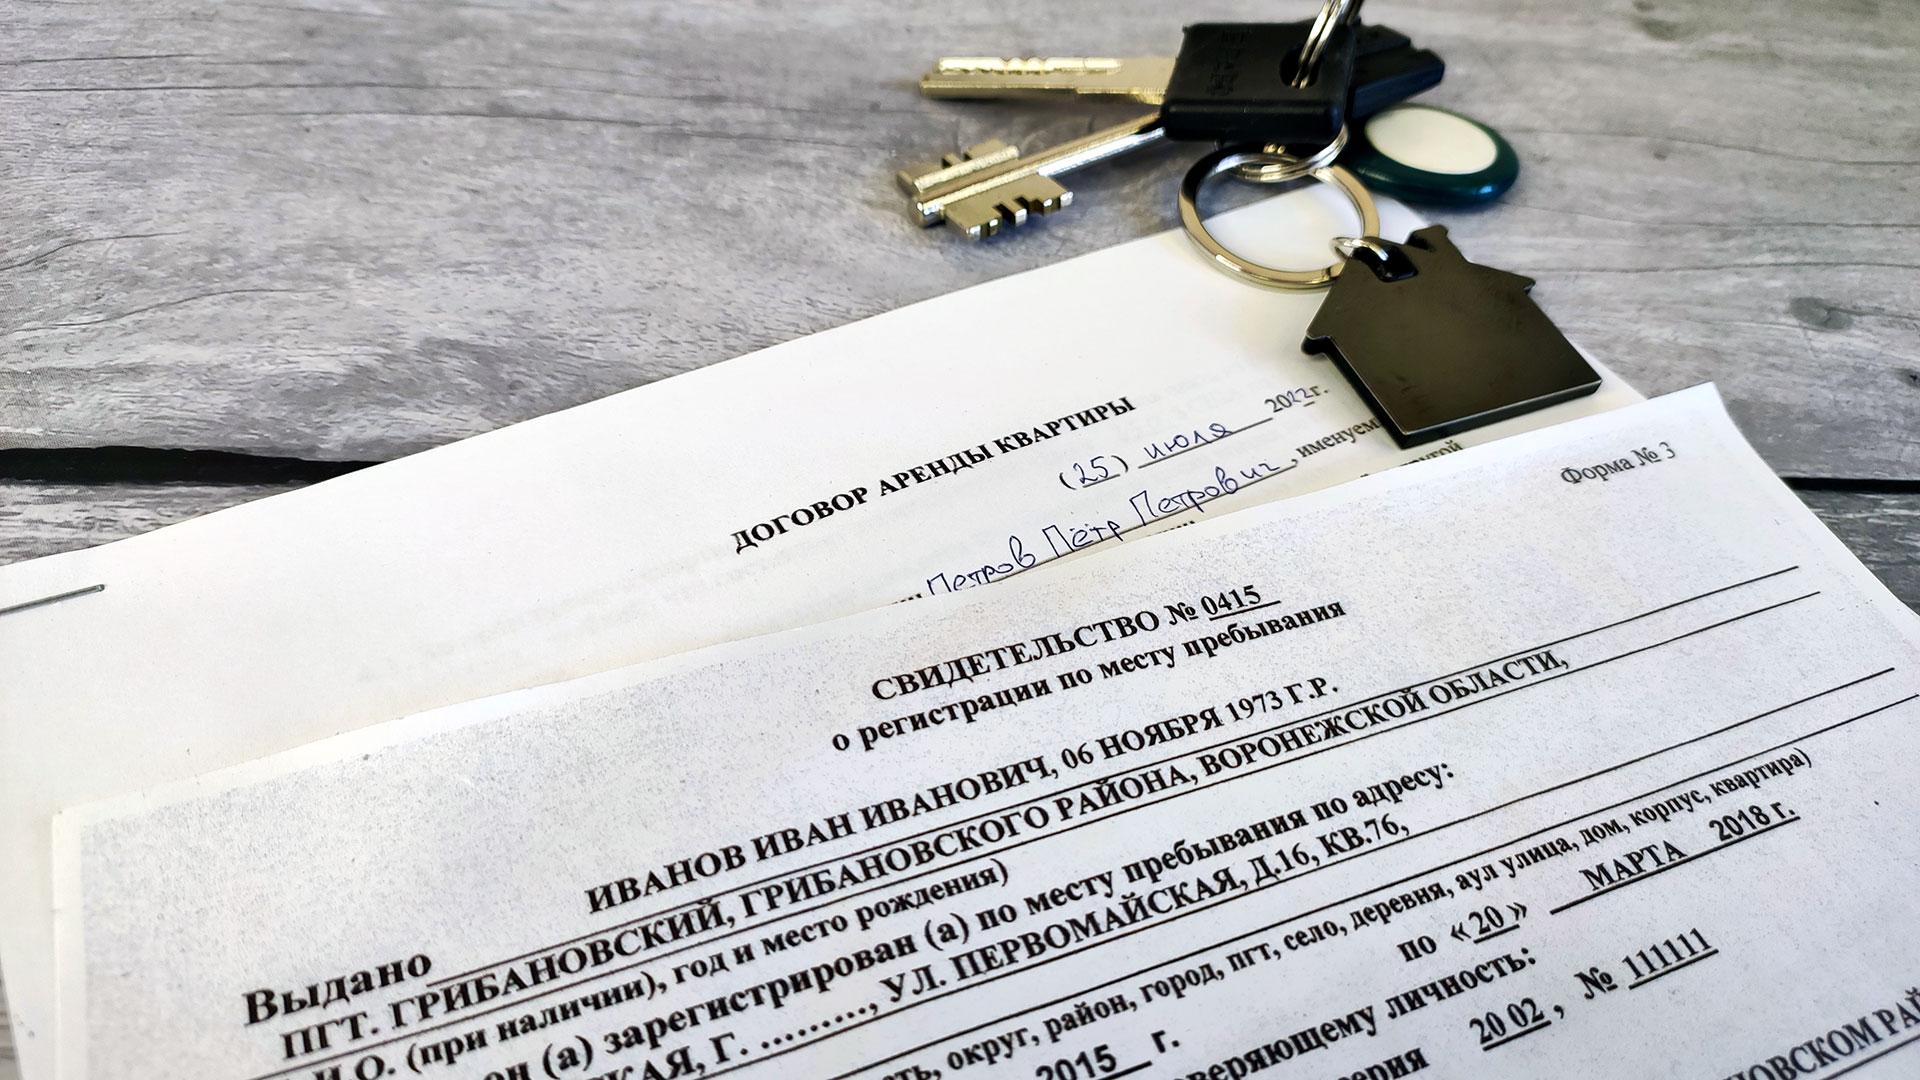 ДОГОВОР АРЕНДЫ КВАРТИРЫ
(25) июля 2022г.
Петров Пётр Петрович, именуем
Форма № 3
СВИДЕТЕЛЬСТВО № 0415
о регистрации по месту пребывания
Выдано ИВАНОВ ИВАН ИВАНОВИЧ, 06 НОЯБРЯ 1973 Г.Р.
ПГТ. ГРИБАНОВСКИЙ, ГРИБАНОВСКОГО РАЙОНА, ВОРОНЕЖСКОЙ ОБЛАСТИ,
И.О. (при наличии), год и место рождения)
он (а) зарегистрирован (а) по месту пребывания по адресу:
КАЯ, Г. ........., УЛ. ПЕРВОМАЙСКАЯ, Д.16, КВ.76,
ть, округ, район, город, пгт, село, деревня, аул улица, дом, корпус, квартира)
2015 г. по «20» МАРТА 2018 г.
оверяющему личность:
ерия 20 02, № 111111
НОВСКОМ РАЙ